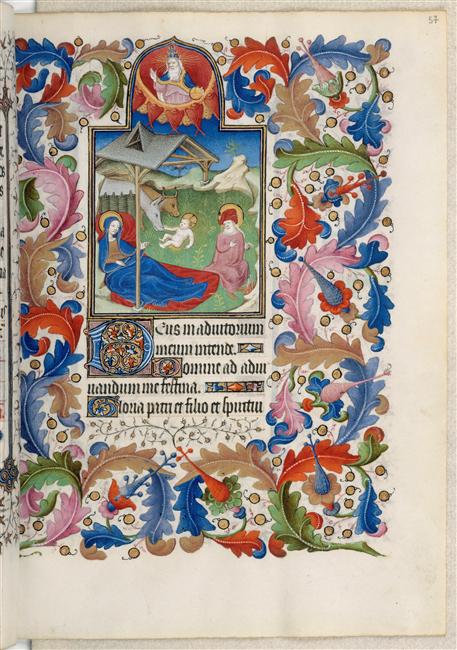 57
Deus in adiutorium
meum intende.
Domine ad adiu
uandum me festina.
Gloria patri et filio et spiritui